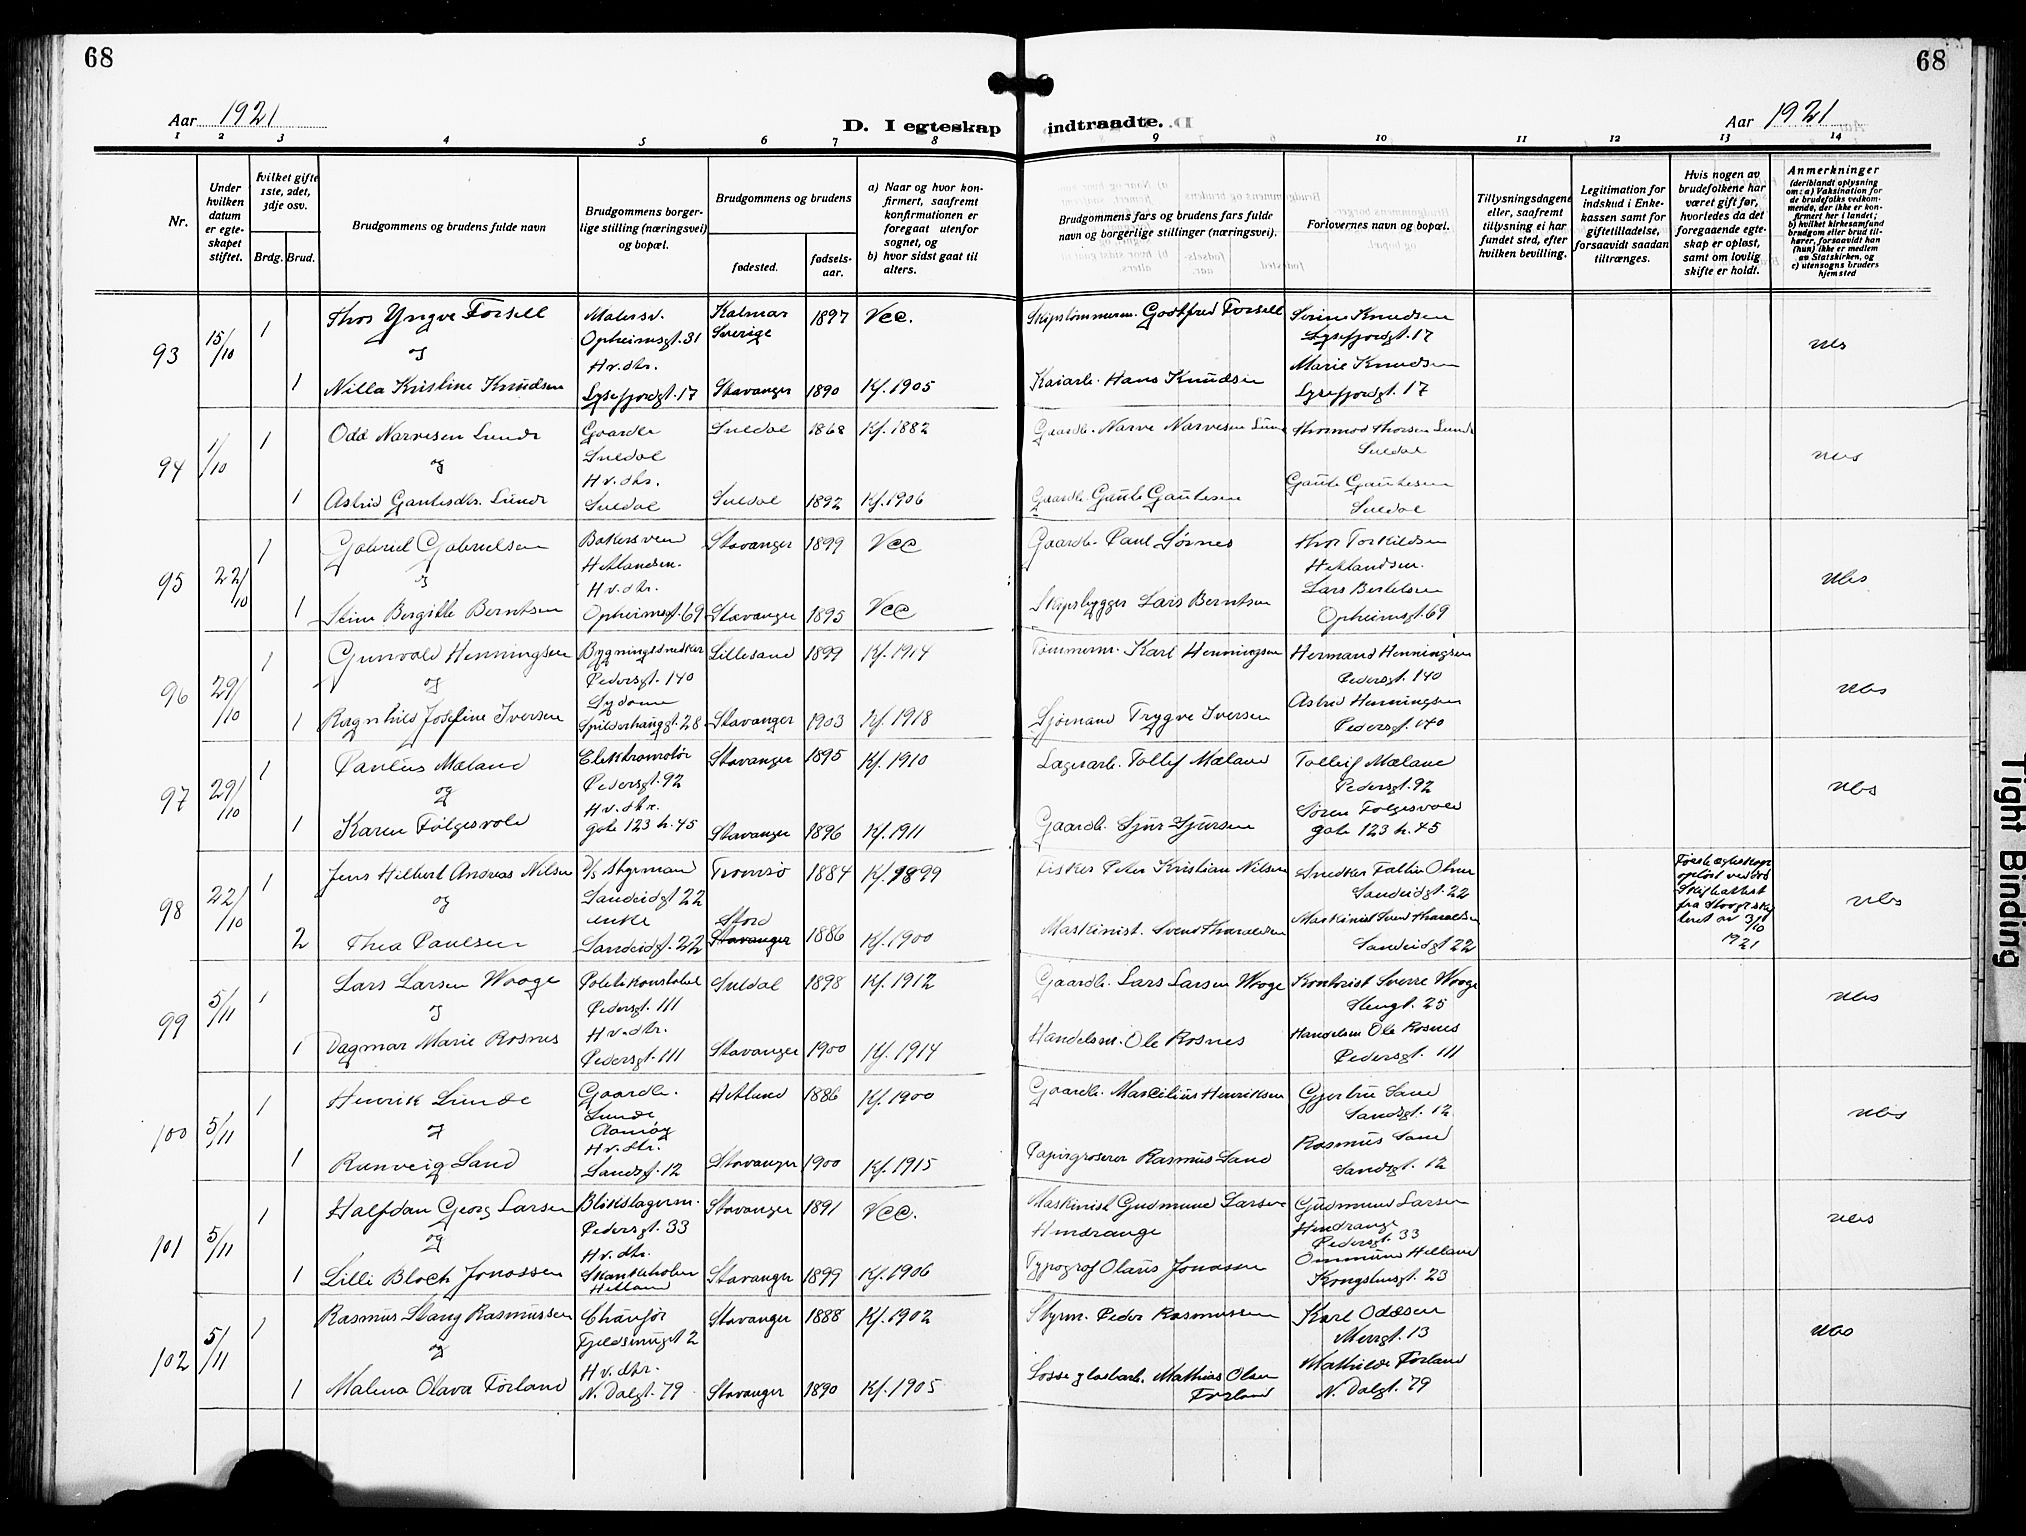 68
68
Aar 1921
D. I egteskap
indtraadte.
Aar 1921
1 2 3 4 5 6 7 8 9 10 11 12 13 14
Nr.
Under hvilken datum er egteskapet stiftet.
Hvilket gifte 1ste, 2det, 3dje osv.
Brdg. Brud.
Brudgommens og brudens fulde navn
Brudgommens borgerlige stilling (næringsvei) og bopæl.
Brudgommens og brudens
fødested.
fødselsaar.
a) Naar og hvor konfirmert, saafremt konfirmationen er foregaat utenfor sognet, og
b) hvor sidst gaat til alters.
Brudgommens fars og brudens fars fulde navn og borgerlige stillinger (næringsvei).
Forlovernes navn og bopæl.
Tillysningsdagene eller, saafremt tillysning ei har fundet sted, efter hvilken bevilling.
Legitimation for indskud i Enkekassen samt for giftetilladelse, forsaavidt saadan tiltrænges.
Hvis nogen av brudefolkene har været gift før, hvorledes da det foregaaende egteskap er opløst, samt om lovlig skifte er holdt.
Anmerkninger
(deriblandt oplysning om: a) Vaksination for de brudefolks vedkommende, der ikke er konfirmert her i landet; b) hvilket kirkesamfund brudgom eller brud tilhører, forsaavidt han (hun) ikke er medlem av Statskirken, og c) utensogns bruders hjemsted
93 15/10 1 Thor Yngve Forsell Malersv. Kalmar 1897 Vcc. Skipstømmerm. Godtfred Forsell Serine Knudsen
Opheimsgt. 31 Sverige Lysefjordgt. 17
og Hv. dtr. Marie Knudsen
1 Nilla Kristine Knudsen Lysefjordgt. 17 Stavanger 1890 Kf. 1905 Kaiarb. Hans Knudsen Lysefjordgt. 17
94 1/10 1 Odd Narvesen Lunde Gaardbr. Suldal 1868 Kf. 1882 Gaardb. Narve Narvesen Lunde Thormod Thorsen Lunde
Suldal Suldal
og Hv. dtr. Gaute Gautesen
1 Astrid Gautesdtr. Lunde Suldal Suldal 1892 Kf. 1906 Gaardb. Gaute Gautesen Suldal
95 22/10 1 Gabriel Gabrielsen Bakersvend Stavanger 1899 Vcc Gaardb. Paul Sørnes Thor Torkildsen
Hetlandsm. Hetlandsm.
og Hv. dtr. Lars Bertelsen
1 Stine Bergitte Berntsen Opheimsgt. 69 Stavanger 1895 Vcc Skipsbygger Lars Berntsen Opheimsgt. 69
96 29/10 1 Gunvald Henningsen Bygningssnedker Lillesand 1899 Kf. 1914 Tømmerm. Karl Henningsen Hermand Henningsen
Pedersgt. 140 Pedersgt. 140
og Sydame Astrid Henningsen
1 Ragnhild Josefine Iversen Spilderhauggt. 28 Stavanger 1903 Kf. 1918 Sjømand Trygve Iversen Pedersgt. 140
97 29/10 1 Paulus Mæland Elektromotør Stavanger 1895 Kf. 1910 Lagerarb. Tollef Mæland Tolleif Mæland
Pedersgt. 92 Pedersgt. 92
og Hv. dtr. Søren Følgesvold
1 Karen Følgesvold gate 123 h. 45 Stavanger 1896 Kf. 1911 Gaardb. Sjur Sjursen gate 123 h. 45
98 22/10 1 Jens Hilbert Andreas Nilsen D/s styrmand Tromsø 1884 Kf. 1899 Fisker Peter Kristian Nilsen Snedker Olsen
Sandeidgt 22 Sandeidgt. 22
og enke Stord Maskinist Svend Tharaldsen
2 Thea Paulsen Sandeidgt. 22 Stavanger 1886 Kf. 1900 Maskinist. Svend Tharaldsen Sandeidgt 22
Første egteskap opløst ved død Skifteattest fra 3/10 1921
99 5/11 1 Lars Larsen Waage Politikonstabel Suldal 1898 Kf. 1912 Gaardb. Lars Larsen Waage Kontorist Sverre Waage
Pedersgt. 111 Stengt. 25
og Hv. dtr. Handelsm Ole Rosnes
1 Dagmar Marie Rosnes Pedersgt. 111 Stavanger 1900 Kf. 1914 Handelsm. Ole Rosnes Pedersgt. 111
100 5/11 1 Henrik Lunde Gaardb. Hetland 1886 Kf. 1900 Gaardb. Marcelius Henriksen Gjertrue Sand
Lunde Sandsgt. 12
og Aamøy
Hv. dtr. Rasmus Sand
1 Runveig Sand Sandsgt. 12 Stavanger 1900 Kf. 1915 Papirgroserer Rasmus Sand Sandsgt. 12
101 5/11 1 Halfdan Georg Larsen Blikslagerm. Stavanger 1891 Vcc. Maskinist Gudmund Larsen Gudmund Larsen
Pedersgt. 33 Hindrange Hindrange
Pedersgt. 33
og Hv. dtr. Ommund Helland
1 Lilli Bloch Jonassen Skankeholen Stavanger 1899 Kf. 1906 Typograf Olaus Jonassen Kongshusgt. 23
Hetland
102 5/11 1 Rasmus Stang Rasmussen Chaufør Stavanger 1888 Kf. 1902 Styrm. Peder Rasmussen Karl Oddsen
Fjeldsmuget 2 Murgt. 13
og Hv. dtr. Mathilde Forland
1 Malena Olava Forland N. Dalgt. 79 Stavanger 1890 Kf. 1905 Losse og lastearb. Mathias Olsen N. Dalgt. 79
Forland
Tight Binding